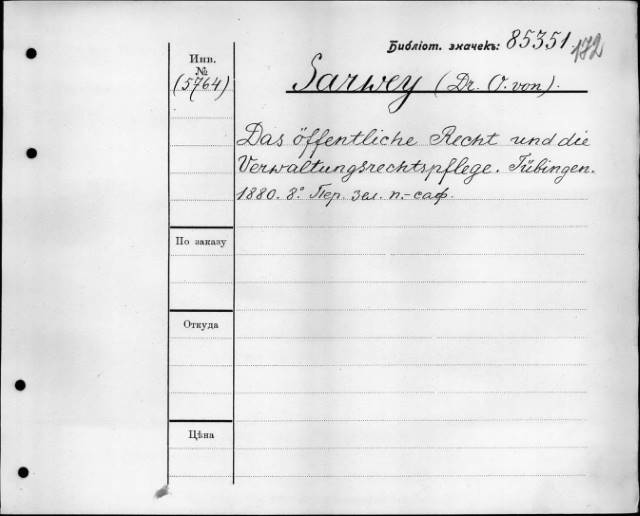 Библіот. значекъ: 85351. 172
Инв.
№
(5764)
Sarwey (Dr. O. von).
Das öffentliche Recht und die
Verwaltungsrechtspflege. Tübingen.
1880. 8º. Пер. зел. п.-саф.
По заказу
Откуда
Цѣна